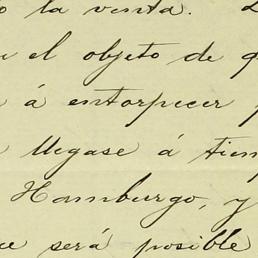 la venta.
el objeto de
á entorpecer
llegase á tiem
Hamburgo, y
será posible